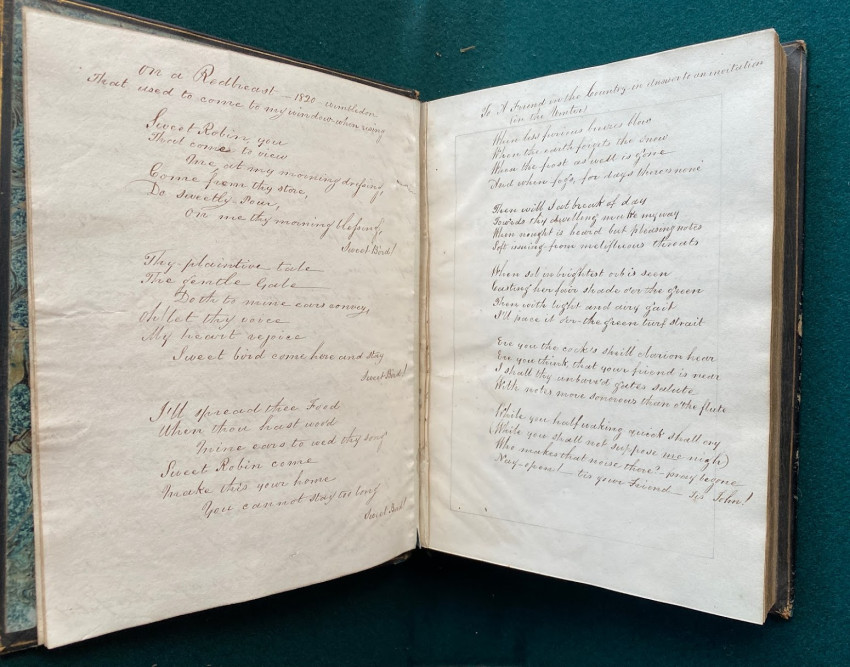 On a Redbreast — 1820 Wimbledon
That used to come to my window when rising
Sweet Robin, you
That come to view
Me at my morning dressing,
Come from thy store,
Do sweetly Pour,
On me thy morning blessing,
Sweet Bird!
Thy plaintive tale
The gentle Gale
Doth to mine ears convey,
Oh let thy voice
My heart rejoice
Sweet bird come here and stay
Sweet Bird!
I'll spread thee Food
When thou hast
mine ears to thy song
Sweet Robin come
make this your home
You cannot stay too long
Sweet Bird!
To A Friend in the Country in answer to an invitation
(in the Winter)
When less furious breezes blow
When the earth forgets the snow
When the frost as well is gone
And when fogs, for days there's none
Then will I at break of day
Towards thy dwelling make my way
When nought is heard but pleasing notes
Soft issuing from melifluous throats
When set in brightest orb is seen
Casting her fair shade o'er the green
Then with light and airy gait
I'll pace it o'er the green turf strait
Ere you the cock's shrill clarion hear
Ere you think that your friend is near
I shall thy unbarr'd gates salute
With notes more sonorous than o' the flute
While you half waking quick shall cry
(While you shall not suppose me nigh)
Who makes that noise there? — pray begone
Nay — open! — tis your Friend — Sir John!